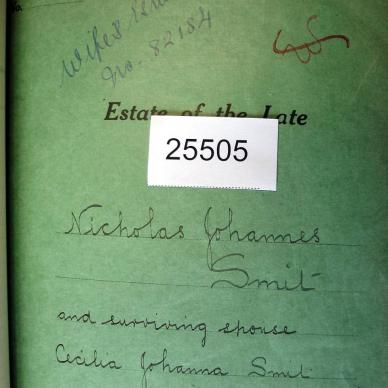 Wifes
No. 82184
Estate of the Late
25505
Nicholas Johannes
Smit
and surviving spouse
Cecilia Johanna Smit